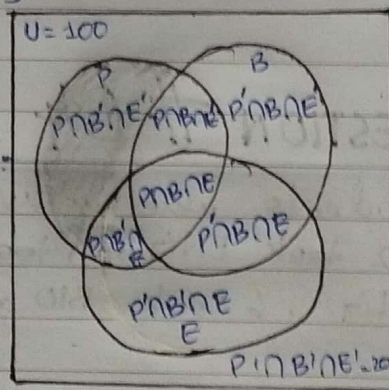 U = 100
P
B
P∩B'∩E'
P∩B∩E'
P'∩B∩E'
P∩B∩E
P∩B'∩
E
P'∩B∩E
P'∩B'∩E
E
P'∩B'∩E'=20